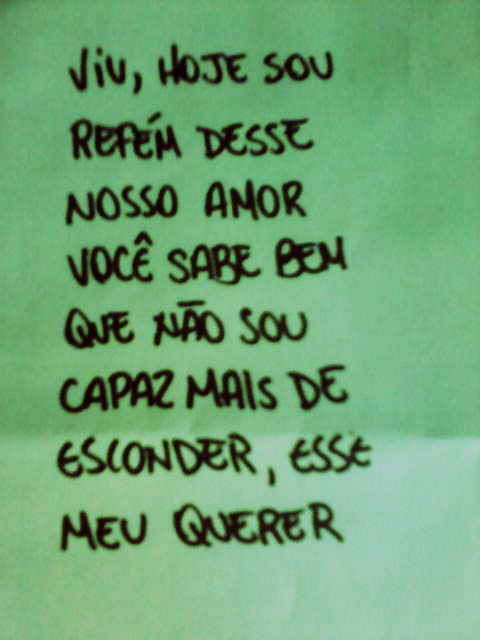 VIU, HOJE SOU
REFÉM DESSE
NOSSO AMOR
VOCÊ SABE BEM
QUE NÃO SOU
CAPAZ MAIS DE
ESCONDER, ESSE
MEU QUERER